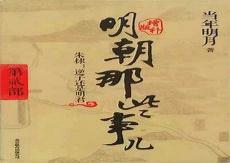 当年明月 著
增补版
明朝那些事儿
朱棣：逆子还是明君
第贰部